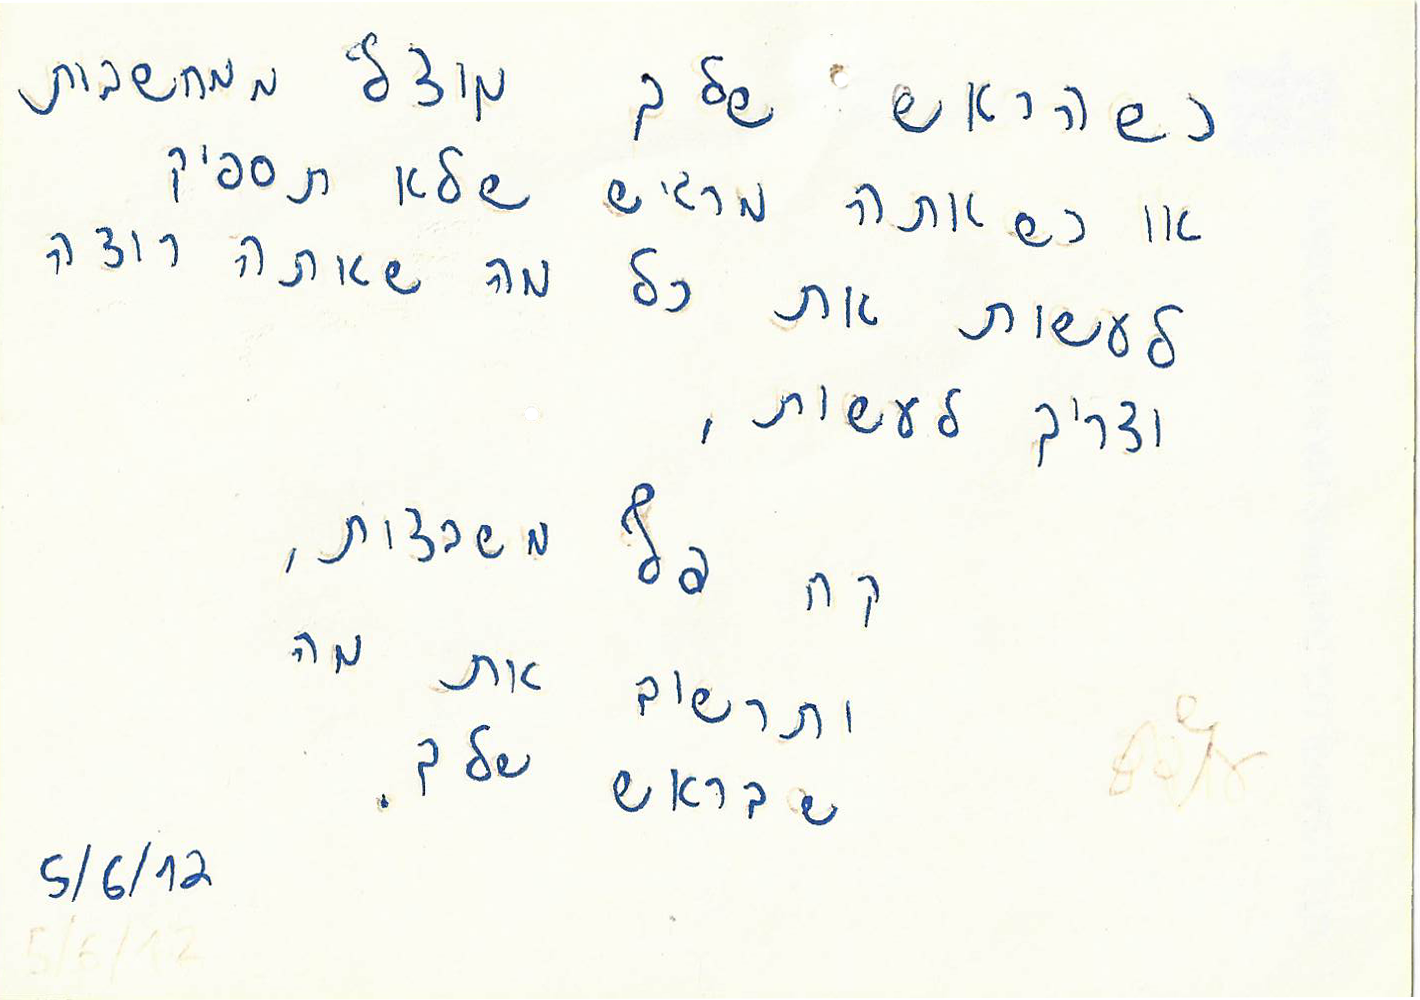 כשהראש שלך מוצף ממחשבות
או כשאתה מרגיש שלא תספיק
לעשות את כל מה שאתה רוצה
וצריך לעשות,
קח דף משבצות,
ותרשוב את מה
שבראש שלך.
5/6/12
5/6/12